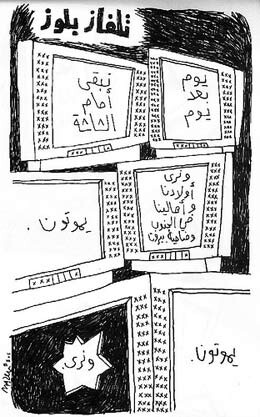 تلفاز بلوز
يوم
بعد
يوم
نبقى
أمام
الشاشة
ونرى
أولادنا
وأهالينا
في الجنوب
وضاحية بيروت
يموتون.
ونرى.
يموتون.